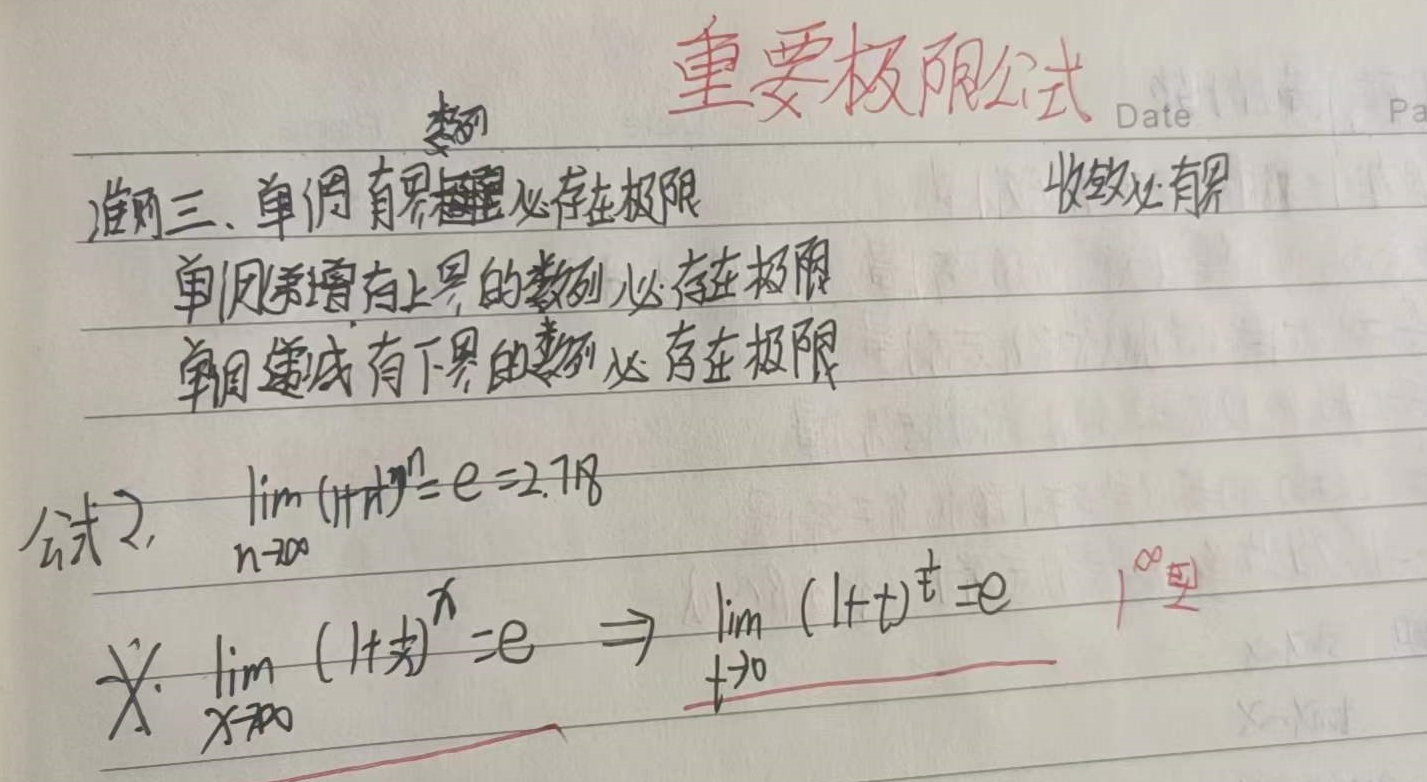 重要极限公式
Date
Pa
数列
准则三、单调有界必存在极限
收敛必有界
单调递增有上界的数列必存在极限
单调递减有下界的数列必存在极限
公式2, lim n→∞ (1+1/n)^n = e = 2.718
※. lim x→∞ (1+1/x)^x = e ⇒ lim t→0 (1+t)^(1/t) = e
1^∞型